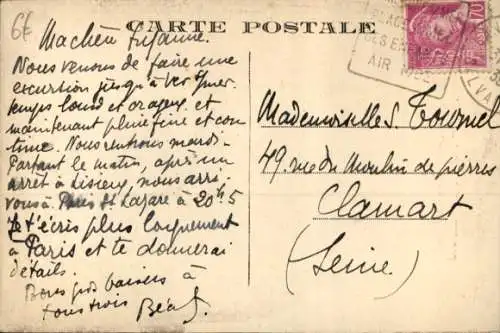 66
CARTE POSTALE
Ma chère Suzanne.
Nous venons de faire une
excursion jusqu'à Ver s/mer
temps lourd et orageux et
maintenant pluie fine et con
tinue. Nous rentrons mardi.
Partant le matin, après un
arrêt à Lisieux, nous arri-
vons à Paris St Lazare à 20h5
Je t'écris plus longuement
à Paris et te donnerai
détails.
Bons gros baisers à
tous trois
AIR
70
Mademoiselle S. Tournel
49 rue du Moulin de pierres
Clamart
(Seine)